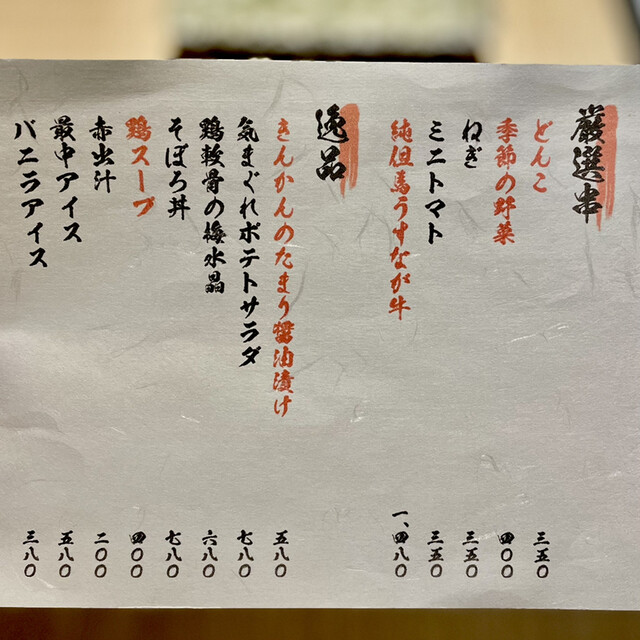 厳選串
どんこ 三五〇
季節の野菜 四〇〇
ねぎ 三五〇
ミニトマト 三五〇
純但馬うすなが牛 一、四八〇
逸品
きんかんのたまり醤油漬け 五八〇
気まぐれポテトサラダ 七八〇
鶏軟骨の梅水晶 六八〇
そぼろ丼 七八〇
鶏スープ 四〇〇
赤出汁 二〇〇
最中アイス 五八〇
バニラアイス 三八〇